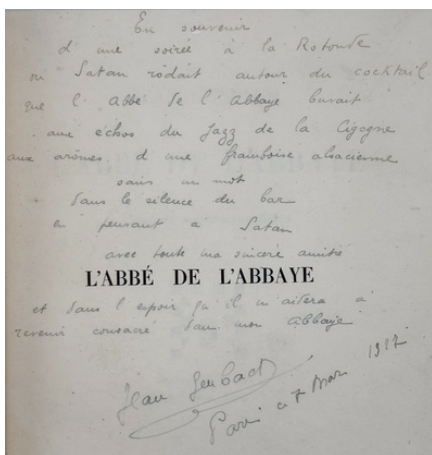 En souvenir
d'une soirée à la Rotonde
où Satan rôdait autour du cocktail
que l'Abbé de l'Abbaye buvait
aux échos du Jazz de la Cigogne
aux arômes d'une framboise alsacienne
sans un mot
dans le silence du bar
en pensant a Satan
avec toute ma sincère amitié
L'ABBÉ DE L'ABBAYE
et dans l'espoir qu'il m'aidera à
revenir consacré dans mon Abbaye
Jean
Paris ce 7 Mars 1927